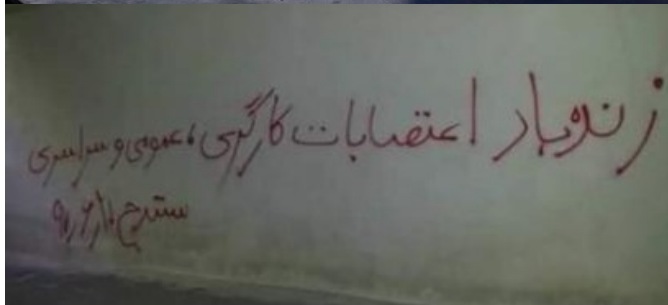 زنده باد اعتصابات کارگری، عمومی و سراسری
سنندج